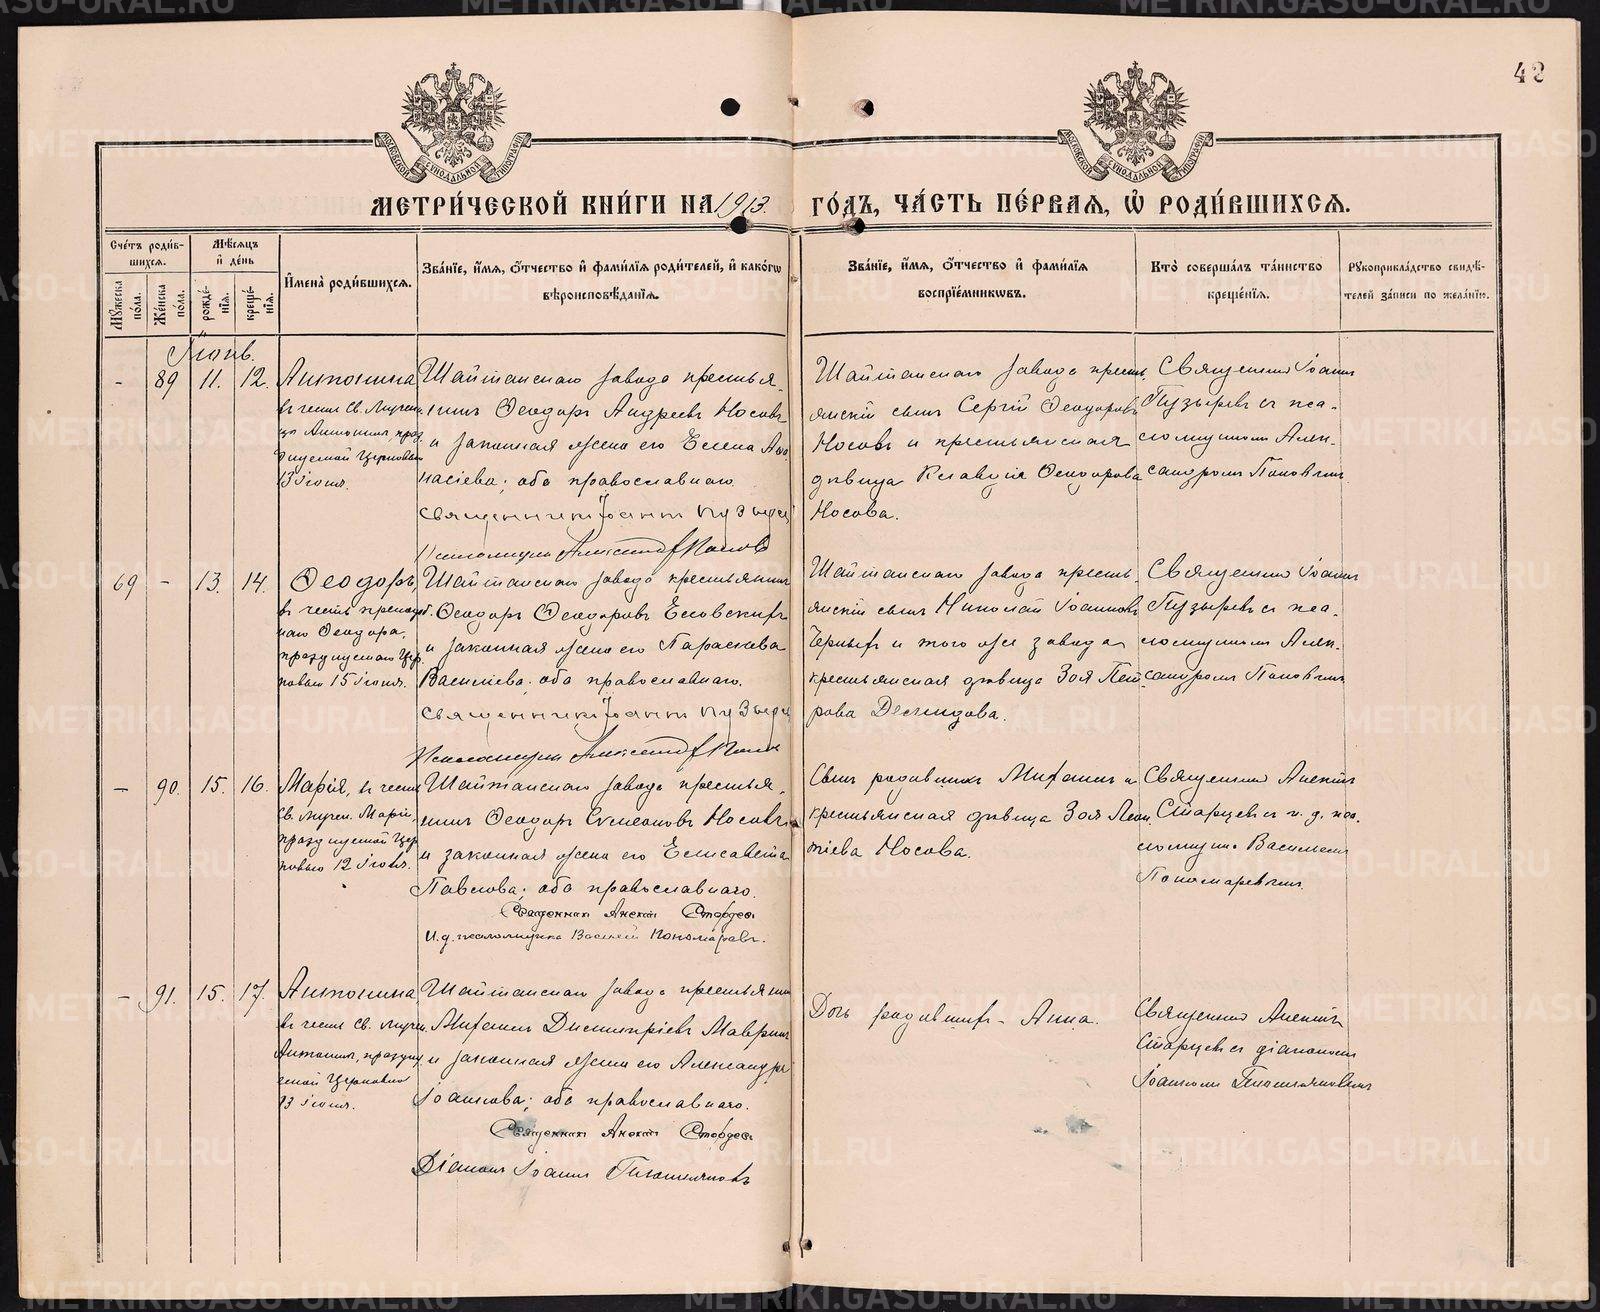 48
МОСКОВСКОЙ СѴНОДАЛЬНОЙ ТИПОГРАФІИ
МОСКОВСКОЙ СѴНОДАЛЬНОЙ ТИПОГРАФІИ
МЕТРИ́ЧЕСКОЙ КНИ́ГИ НА 1913. ГО́ДЪ, ЧА́СТЬ ПЕ́РВАЯ, Ѡ҆ РОДИ́ВШИХСЯ.
Сче́тъ роди́в-
шихся.
Мѣ́сяцъ
и҆ де́нь
Мꙋ́жеска
по́ла.
Же́нска
по́ла.
рожде́-
нїя.
креще́-
нїя.
И҆мена̀ роди́вшихся.
Зва́нїе, и҆́мя, ѻ҆́тчество и҆ фами́лїя роди́телей, и҆ како́гѡ
вѣроисповѣ́данїя.
Зва́нїе, и҆́мя, ѻ҆́тчество и҆ фами́лїя
воспрїе́мникѡвъ.
Кто̀ соверша́лъ та́инство
креще́нїя.
Рꙋкоприкла́дство свидѣ́-
телей за́писи по жела́нїю.
Іюнь.
- 89 11. 12.
Антонина
въ честь св. мучени-
цы Антонины празд-
нуемой Церковью
13 Іюня.
Шайтанскаго завода крестья-
нинъ Ѳеодоръ Андреевъ Носовъ
и законная жена его Елена Аѳа-
насіева; оба православнаго.
Священникъ Іоаннъ Пузыревъ
Псаломщикъ Александръ Поповъ
Шайтанскаго завода кресть-
янскій сынъ Сергій Ѳеодоровъ
Носовъ и крестьянская
дѣвица Клавдія Ѳеодорова
Носова.
Священникъ Іоаннъ
Пузыревъ съ пса-
ломщикомъ Алек-
сандромъ Поповымъ.
69 - 13. 14.
Ѳеодоръ,
въ честь преподоб-
наго Ѳеодора,
празднуемаго Цер-
ковью 15 Іюня.
Шайтанскаго завода крестьянинъ
Ѳеодоръ Ѳеодоровъ Есовскихъ
и законная жена его Параскева
Василіева; оба православнаго.
Священникъ Іоаннъ Пузыревъ
Псаломщикъ Александръ Поповъ
Шайтанскаго завода кресть-
янскій сынъ Николай Іоанновъ
Черныхъ и того же завода
крестьянская дѣвица Зоя Пет-
рова Демидова.
Священникъ Іоаннъ
Пузыревъ съ пса-
ломщикомъ Алек-
сандромъ Поповымъ
- 90. 15. 16.
Марія, въ честь
св. мучен. Маріи,
празднуемой Цер-
ковью 12 Іюля.
Шайтанскаго завода крестья-
нинъ Ѳеодоръ Симеоновъ Носовъ
и законная жена его Елисавета
Павлова; оба православнаго.
Священникъ Алексій Старцевъ
И. д. псаломщика Василій Пономаревъ.
Сынъ родившихъ Михаилъ и
крестьянская дѣвица Зоя Леон-
тіева Носова.
Священникъ Алексій
Старцевъ съ и. д. пса-
ломщика Василіемъ
Пономаревымъ.
- 91. 15. 17.
Антонина,
въ честь св. мучен.
Антонины, праздну-
емой Церковью
13 Іюня.
Шайтанскаго завода крестьянинъ
Михаилъ Димитріевъ Мавринъ
и законная жена его Александра
Іоаннова; оба православнаго.
Священникъ Алексій Старцевъ
Діаконъ Іоаннъ
Дочь родившихъ - Анна.
Священникъ Алексій
Старцевъ съ діакономъ
Іоанномъ